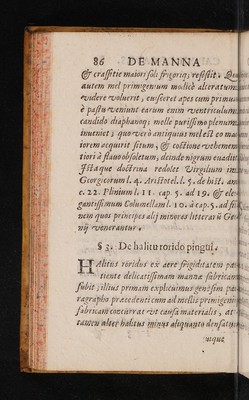 86 DE MANNA
& crassitie maiori soli frigoriq; resistit. Quod
autem mel primigenium mollitè alteratum
videre voluerit, enseceret apes cum primum
è pastu veniunt earum enim ventriculum
candido diaphanoq; melle purissimo plenum
inueniet; quo verò antiquius mel est eo ma-
iorem acquirit situm, & coctione vehemen-
tiori à flauo obsoletum, deinde nigrum euadit.
Istaque doctrina redolet Virgilium in
Georgicorum l. 4. Aristotel. l. 5. de hist. an
c. 22. Plinium l. 11. cap. 5. ad 19. & ele-
gantissimum Columellam l. 10. à cap. 5. ad fi-
nem quos principes alij minores litteraru
venerantur.
§ 3. De halitu rorido pingui.
HAlitus roridus ex aere frigiditatem pa-
tiente delicatissimam mannæ fabricam
subit; illius primam explicuimus genesim pa-
ragrapho præcedenti cum ad mellis primigenij
fabricam concurrat vt causa materialis, at-
tamen alter halitus minus aliquanto densatus
vsque